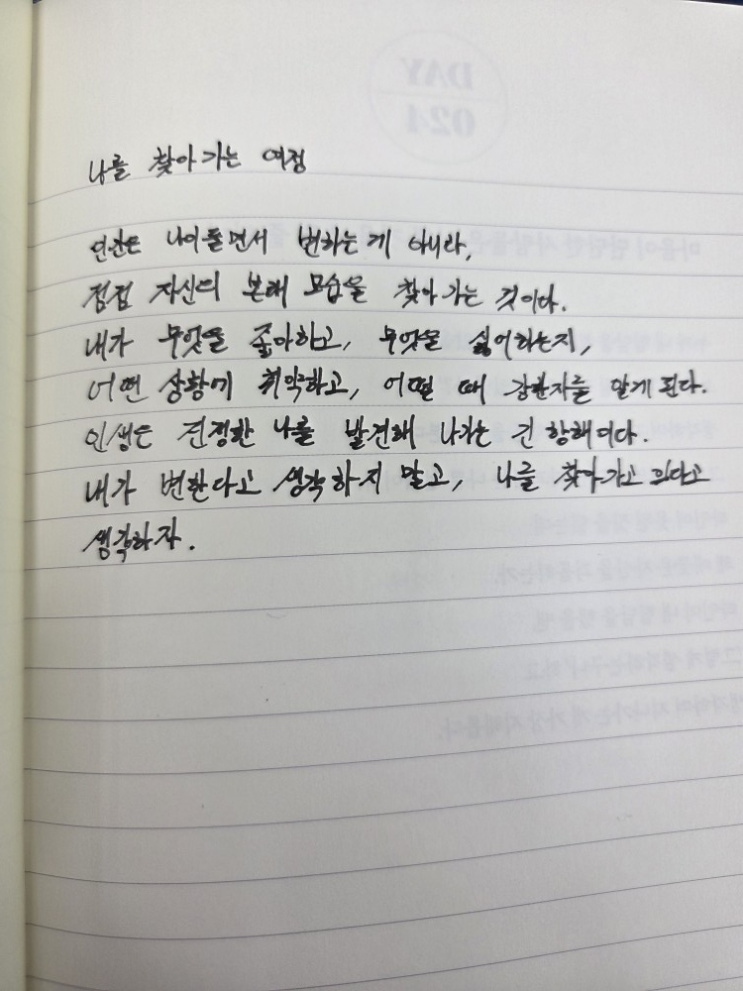 나를 찾아가는 여정
인간은 나이들면서 변하는게 아니라,
점점 자신의 본래 모습을 찾아가는 것이다.
내가 무엇을 좋아하고, 무엇을 싫어하는지,
어떤 상황에 취약하고, 어떨 때 강한자를 알게 된다.
인생은 진정한 나를 발견해 나가는 긴 항해이다.
내가 변한다고 생각하지 말고, 나를 찾아가고 있다고
생각하자.
DAY
024